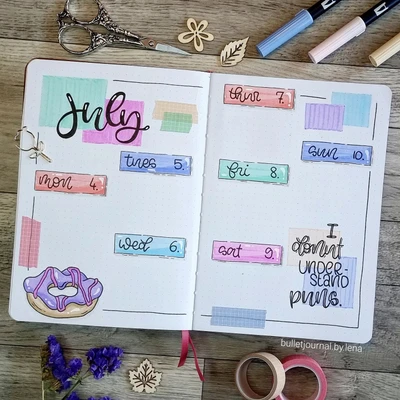 July
mon 4.
tues 5.
wed 6.
thur 7.
fri 8.
sat 9.
sun 10.
I
donut
UNDER-
STAND
puns.
bulletjournal.by.lena